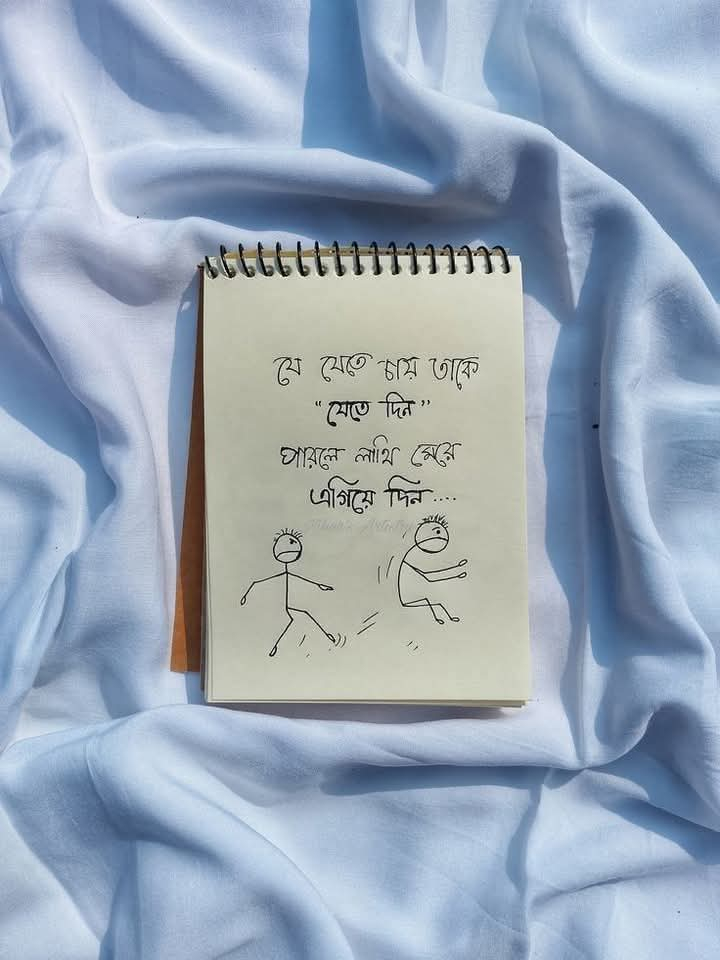 যে যেতে চায় তাকে
“যেতে দিন”
পারলে লাথি মেরে
এগিয়ে দিন....